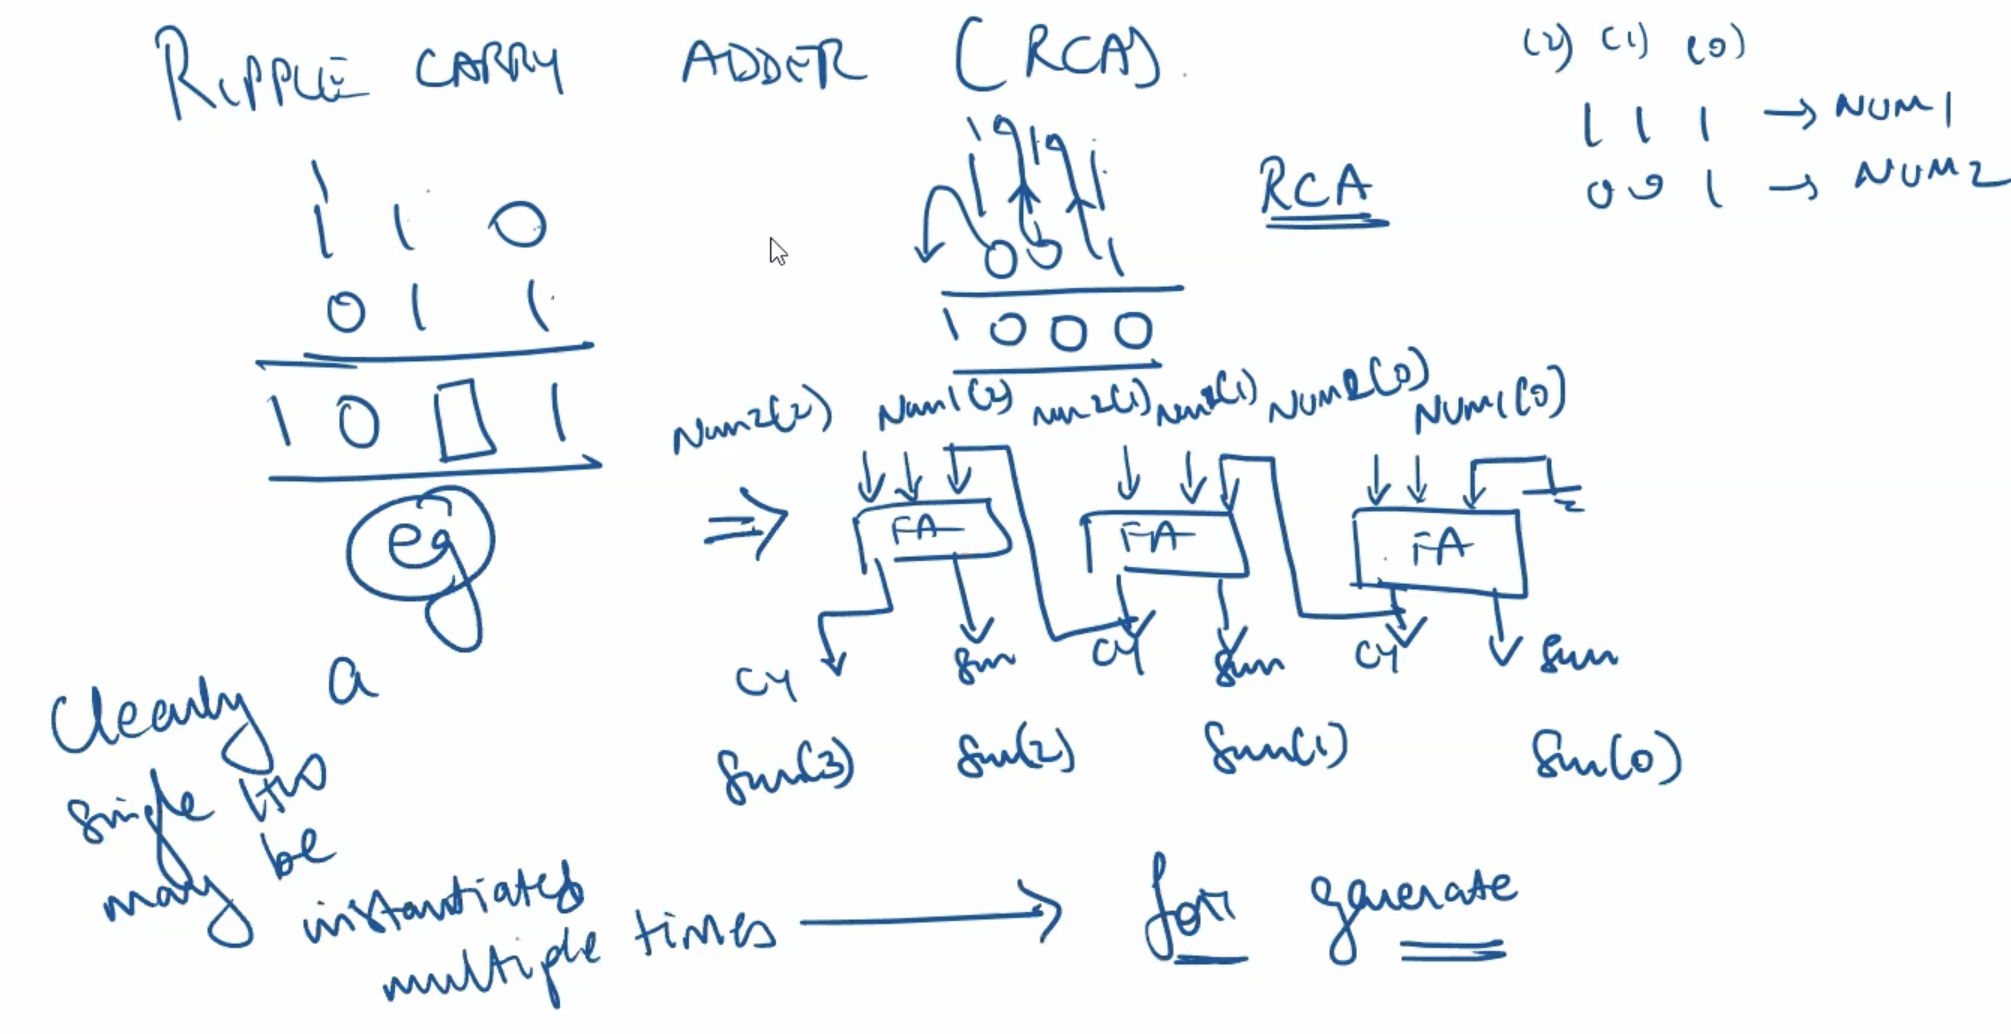 RIPPLE CARRY ADDER (RCA).
(2) (1) (0)
1 1 1 → NUM1
0 0 1 → NUM2
RCA
1
1 1 0
0 1 1
1 0 0 1
eg
1 1 1
1 1 1
0 0 1
1 0 0 0
Num2(2) Num1(2) Num2(1) Num1(1) Num2(0) Num1(0)
⇒ FA FA FA
CY Sum CY Sum CY Sum
Sum(3) Sum(2) Sum(1) Sum(0)
Clearly a
single
may be
instantiated
multiple times → for generate